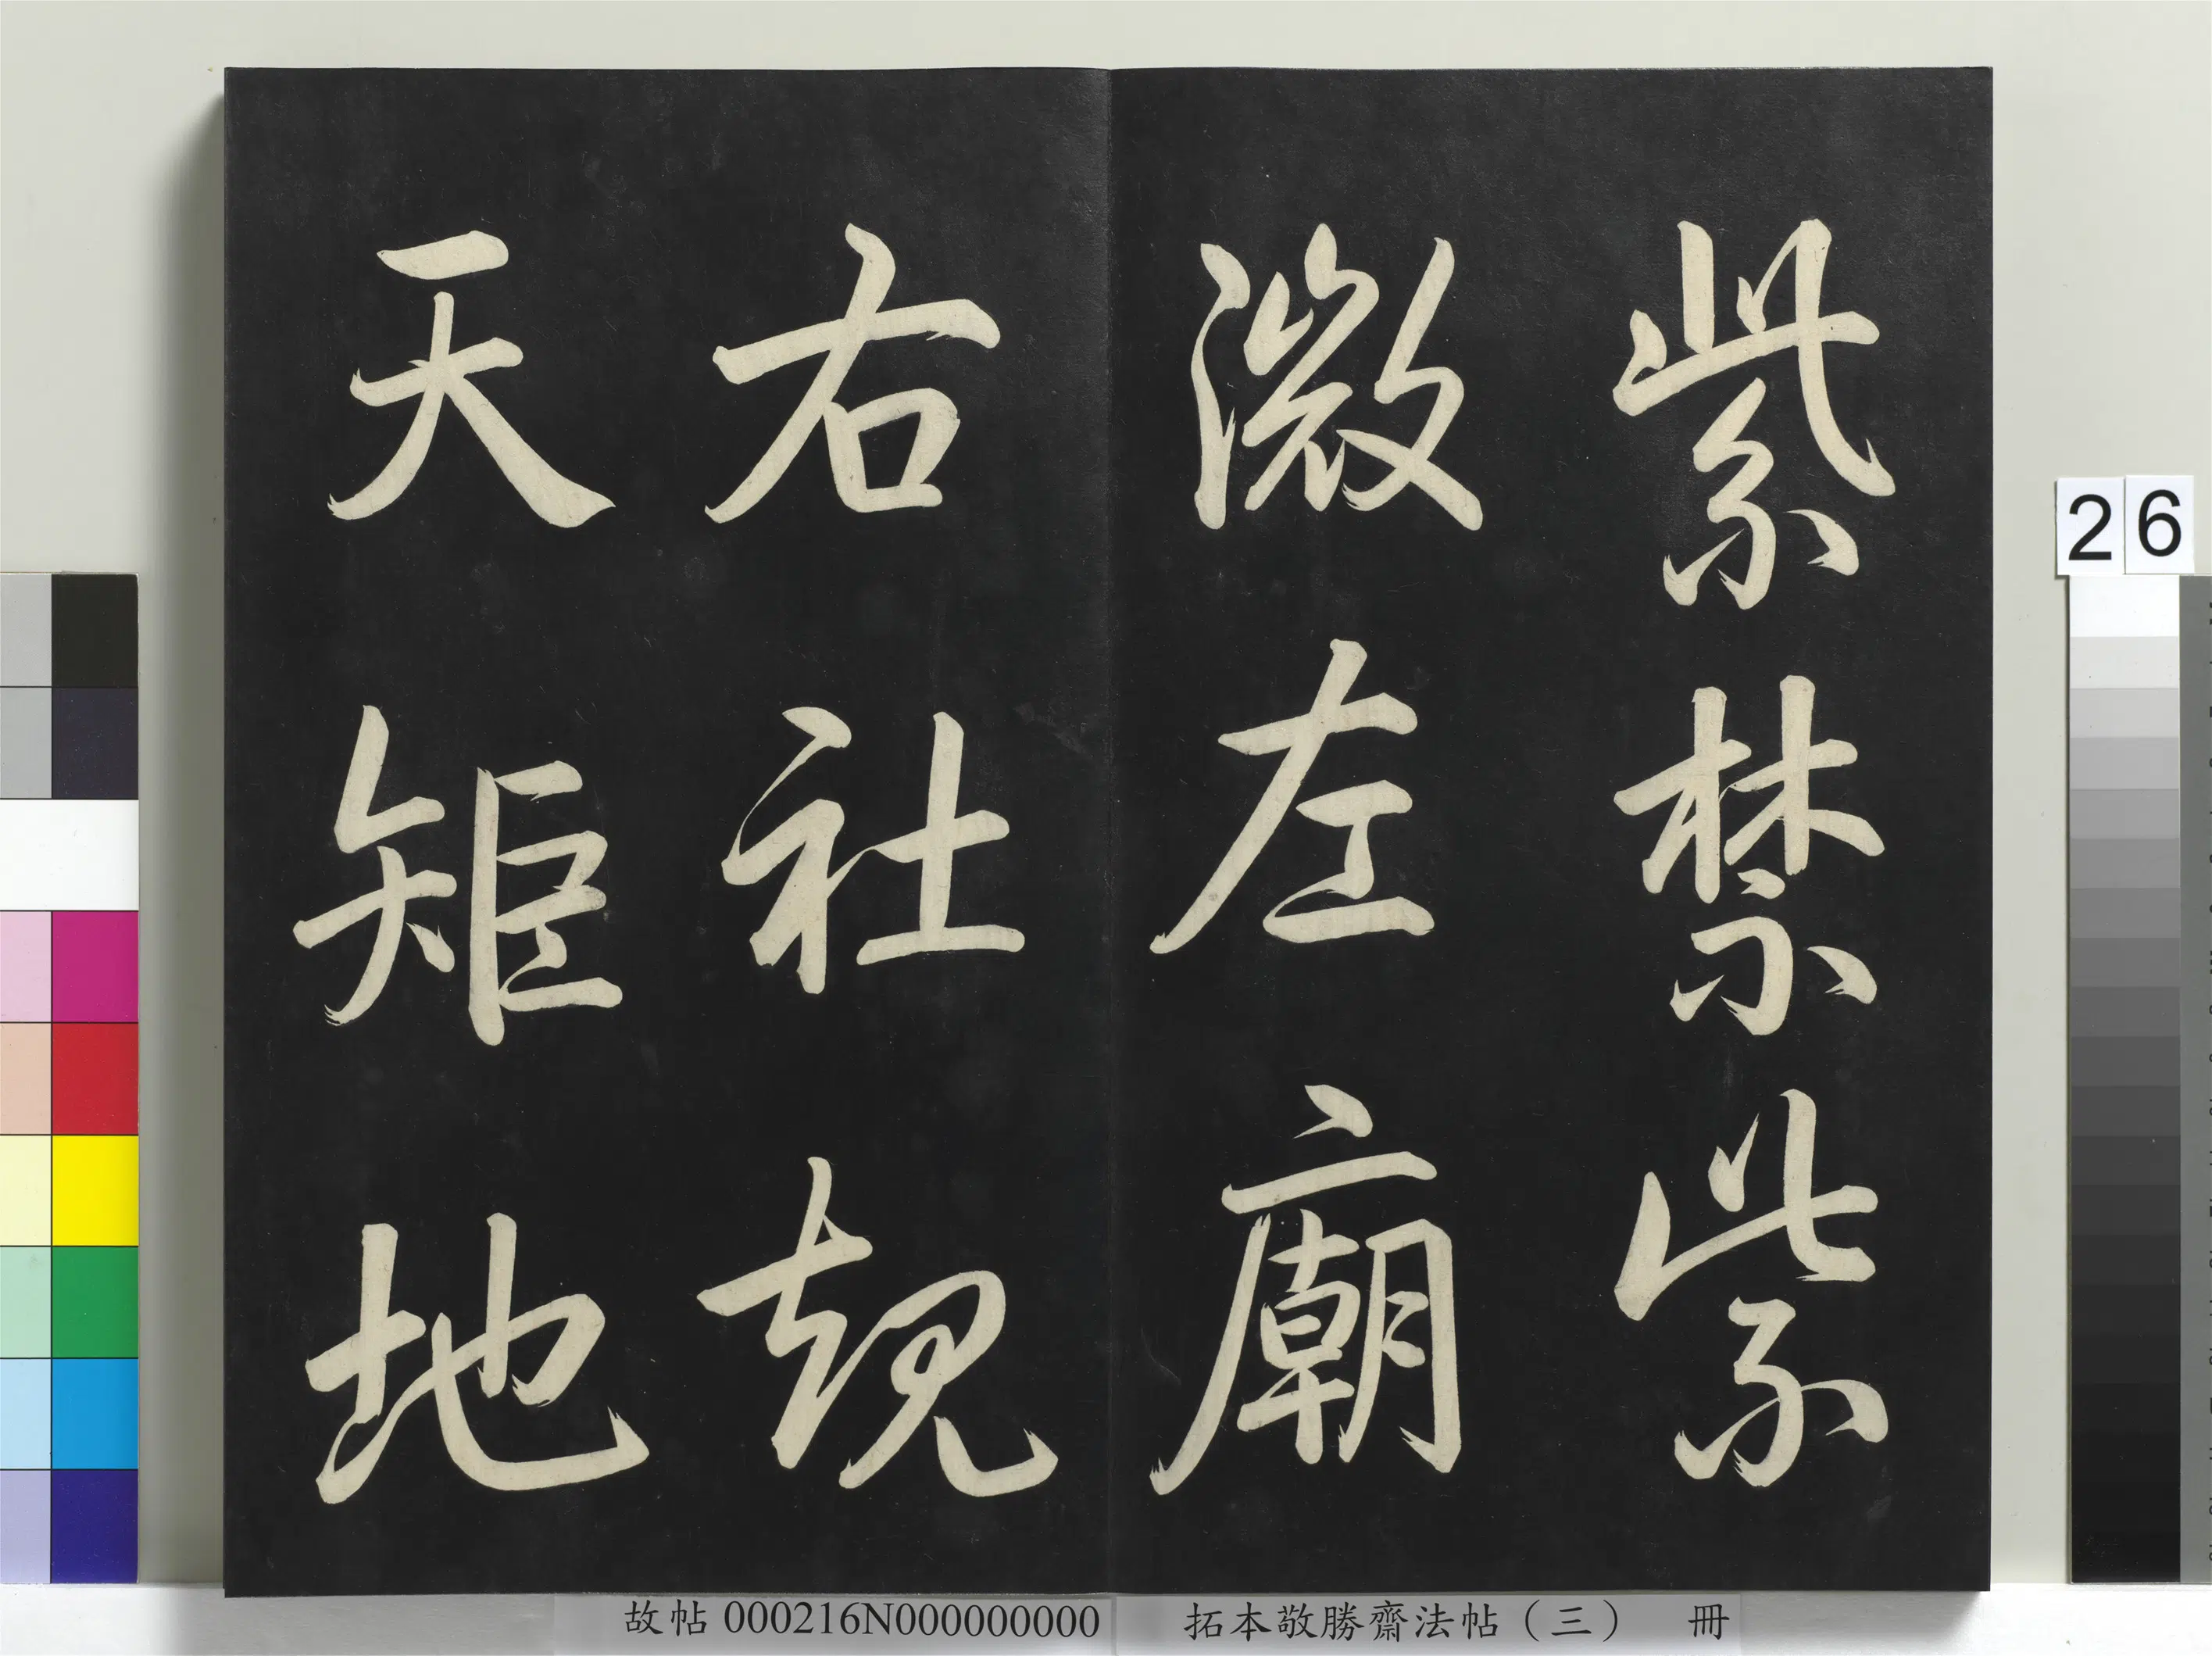 紫禁紫
微左廟
右社規
天矩地
26
故帖000216N000000000
拓本敬勝齋法帖（三）　冊